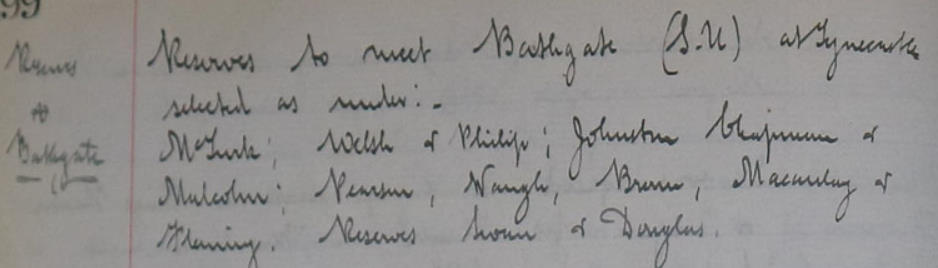 99
Reserves
v
Bathgate
Reserves to meet Bathgate (S.U) at Tynecastle
selected as under:-
McTurk; Welsh & Philip; Johnston Chapman &
Malcolm; Pearson, Waugh, Brown, Macaulay &
Fleming. Reserves Swan & Douglas.